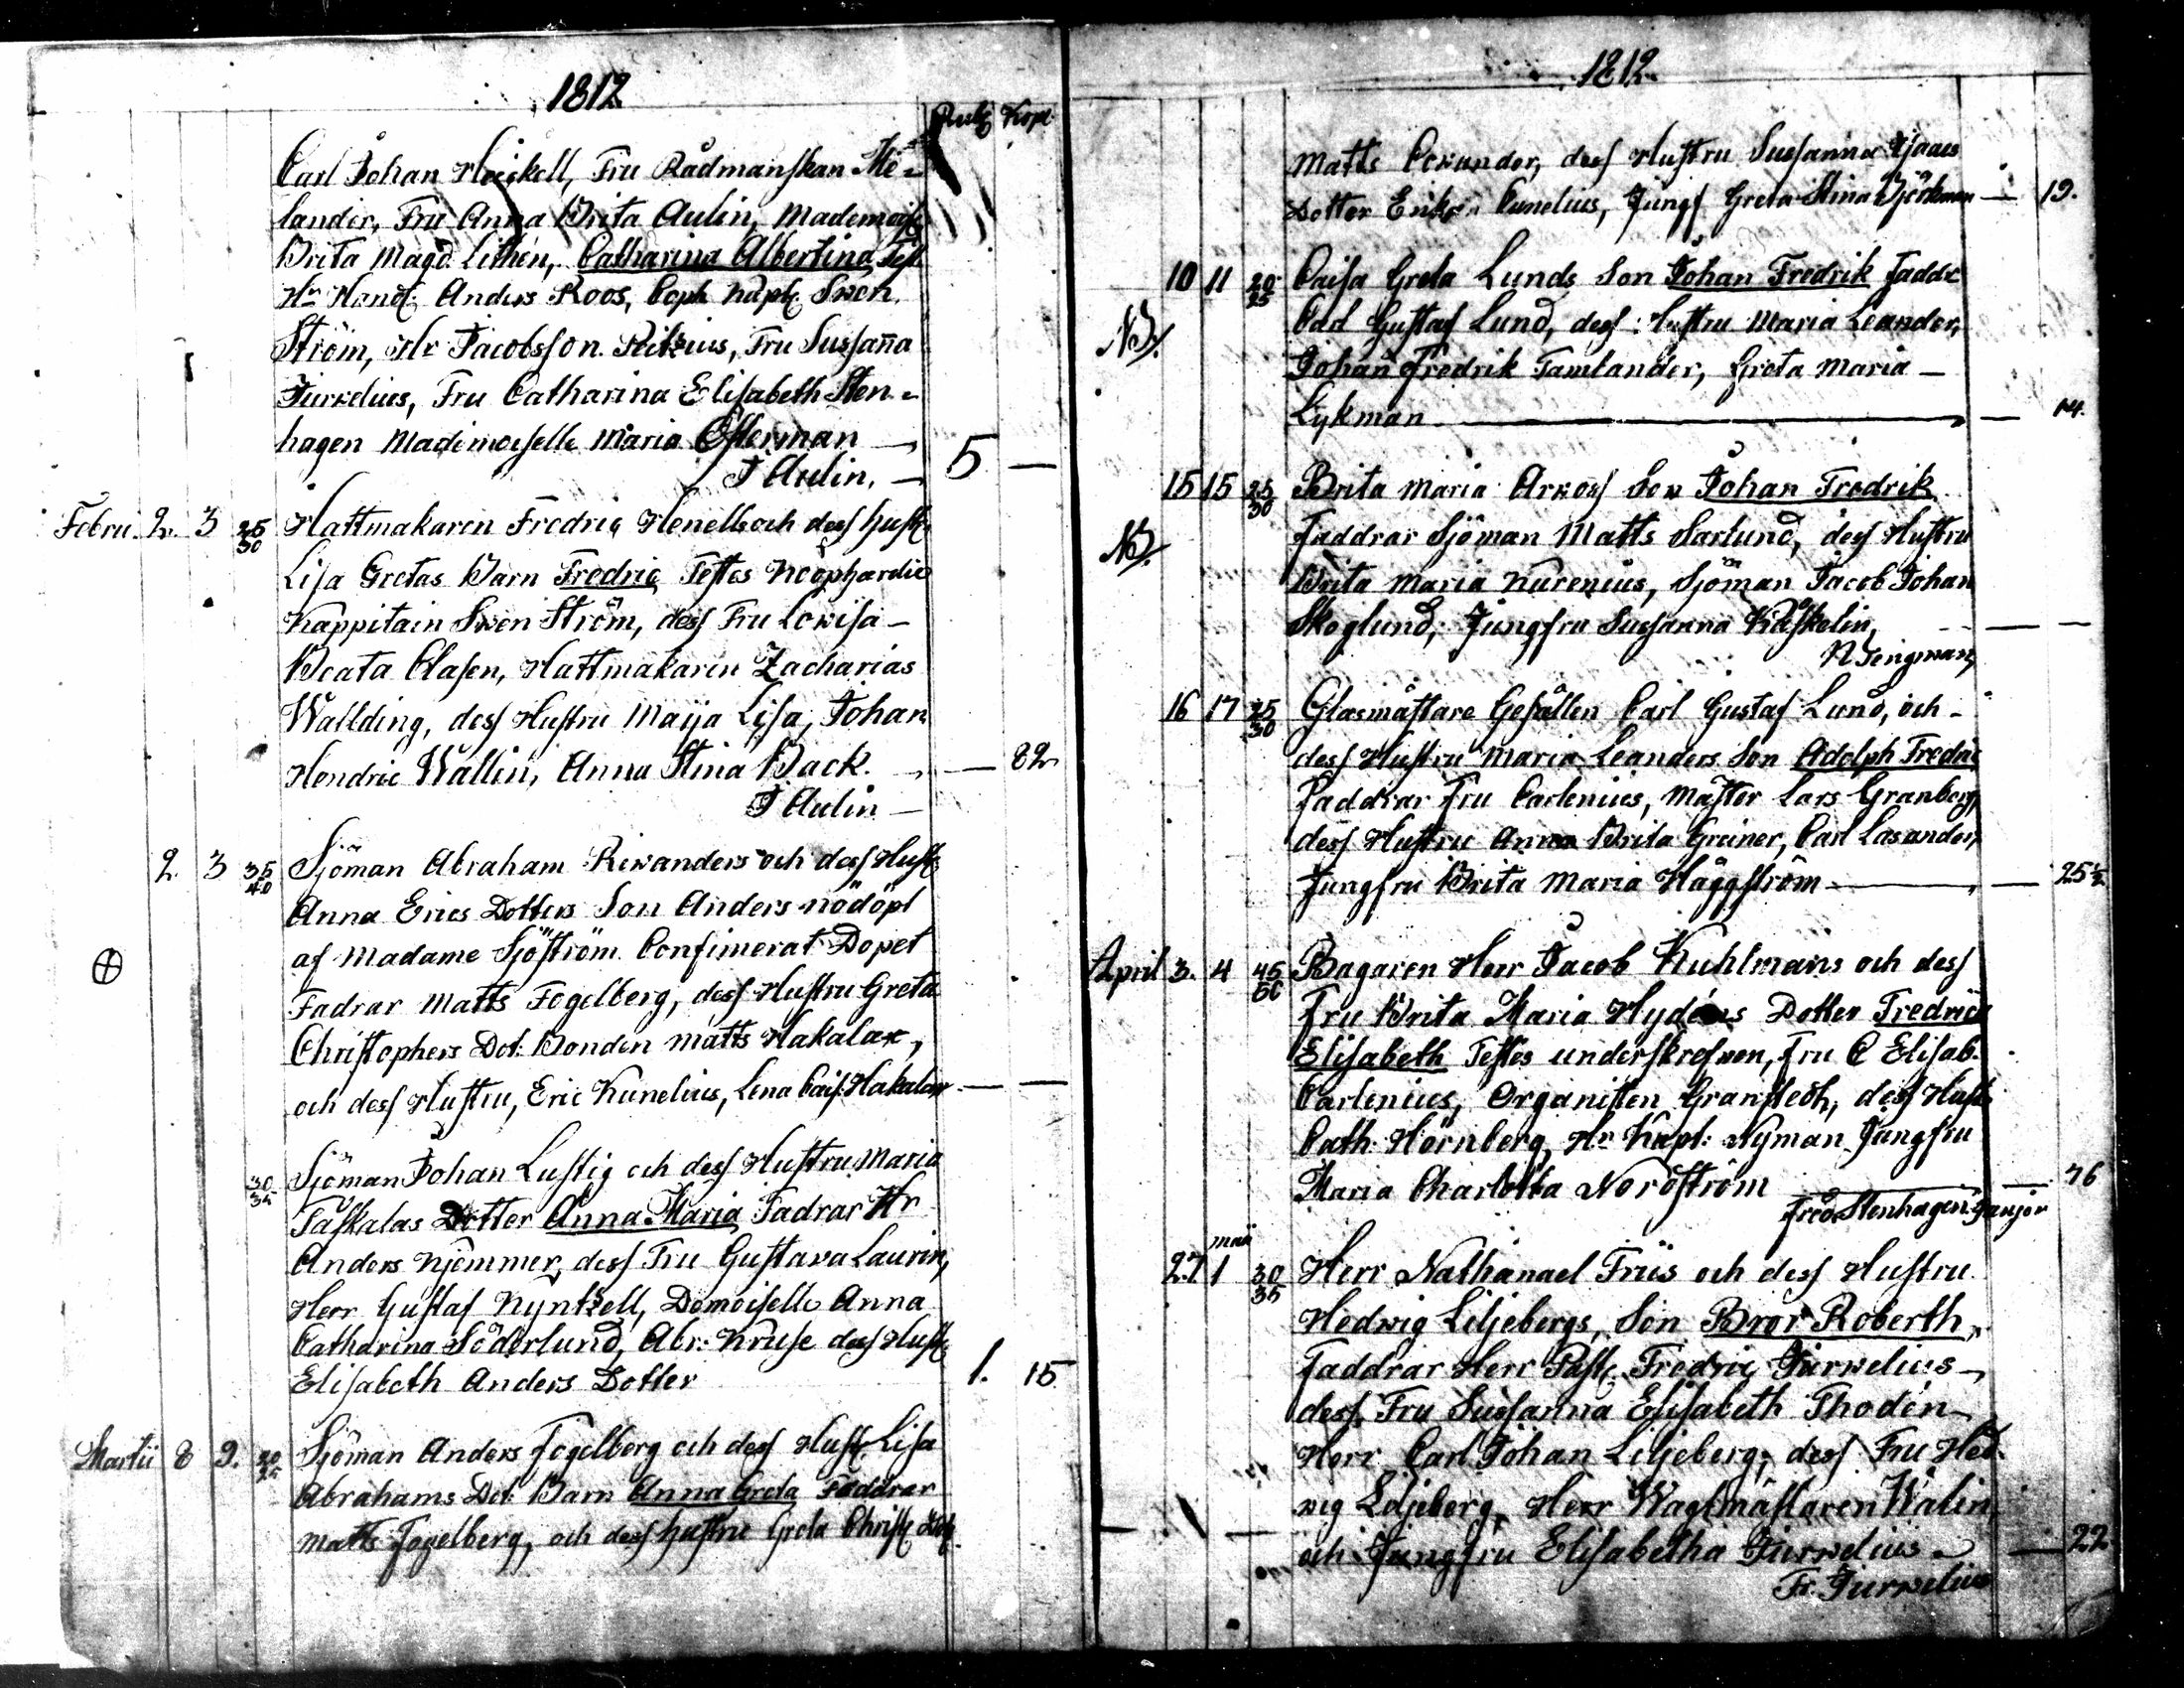 1812
Rubl Kop
Carl Johan Heickell, Fru Rådmanskan Me-
lander, Fru Anna Brita Aulin, Mademois
Brita Magd. Lithén, Catharina Albertina, Test
Hr Handl. Anders Roos, Coph Kapt. Swen
Ström, Hr Jacobsson Fru Sussana
Jurvelius, Fru Catharina Elisabeth Sten-
hagen Mademoiselle Maria Österman
J Aulin. 5 —
Febru. 2. 3 25/30 Hattmakaren Fredric Henells och dess hust
Lisa Gretas Barn Fredric Testes Koophardie
Kappitain Swen Ström, dess Fru Lowisa
Beata Clasen, Hattmakaren Zacharias
Wallding, dess Hustru Maija Lisa, Johan
Hendric Wallin, Anna Stina Back. — 82
J Aulin
2. 3 35/40 Sjöman Abraham Riwanders och dess Hust
Anna Erics Dotters Son Anders nödöpt
af Madame Sjöström Confimerat Dopet
Fadrar Matts Fogelberg, dess Hustru Greta
Christophers Dot: Bonden Matts Hakalax,
och dess Hustru, Eric Kunelius, Lena Cais: Hakalax — —
30/35 Sjöman Johan Lustig och dess Hustru Maria
Taskalas Dotter Anna Maria Fadrar Hr
Anders Kjemmer, dess Fru Gustava Laurin,
Herr Gustaf Kyntzell, Demoiselle Anna
Catharina Söderlund, Abr: Kruse dess Hust
Elisabeth Anders Dotter 1. 15
Martii 8 9. 20/25 Sjöman Anders Fogelberg och dess Hust. Lisa
Abrahams Dot: Barn Anna Greta Faddrar
Matts Fogelberg, och dess hustru Greta Christ Dot
1812
Matts dess Hustru Susanna
Dotter Cunelius, Jungf Greta Stina Björkman — 19.
10 11 20/25 Caisa Greta Lunds Son Johan Fredrik Faddr
NB. Carl Gustaf Lund, dess Hustru Maria Leander,
Johan Fredrik Tamlander, Greta Maria —
Lykman — 14.
15 15 25/30 Brita Maria Son Johan Fredrik
NB. Faddrar Sjöman Matts Sarlund, dess Hustru
Brita Maria Kurenius, Sjöman Jacob Johan
Skoglund, Jungfru Susanna Kaskelin — —
N Tengman
16 17 25/30 Glasmästare Gesällen Carl Gustaf Lund, och
dess Hustru Maria Leanders Son Adolph Fredric
Faddrar Fru Carlenius, Mäster Lars Granberg,
dess Hustru Anna Brita Greiner, Carl Lasander,
Jungfru Brita Maria Häggström — 25½
April 3. 4 45/50 Bagaren Herr Jacob Kuhlmans och dess
Fru Brita Maria Hydéns Dotter Fredrica
Elisabeth Testes underskrefwen, Fru C Elisab.
Carlenius, Organisten Granstedh, dess Hust
Cath. Hörnberg, Hr Kapt: Nyman Jungfru
Maria Charlotta Nordström — 76
Fred. Stenhagen
27 maii 1 30/35 Herr Nathanael Friis och dess Hustru
Hedwig Liljebergs, Son Bror Roberth,
Faddrar Herr Past. Fredric Jurvelius,
dess Fru Sussanna Elisabeth Thodén
Herr Carl Johan Liljeberg, dess Fru Hed-
wig Liljeberg, Herr Wagtmästaren Walin,
och Jungfru Elisabetha Jurvelius — 22
Fr. Jurvelius